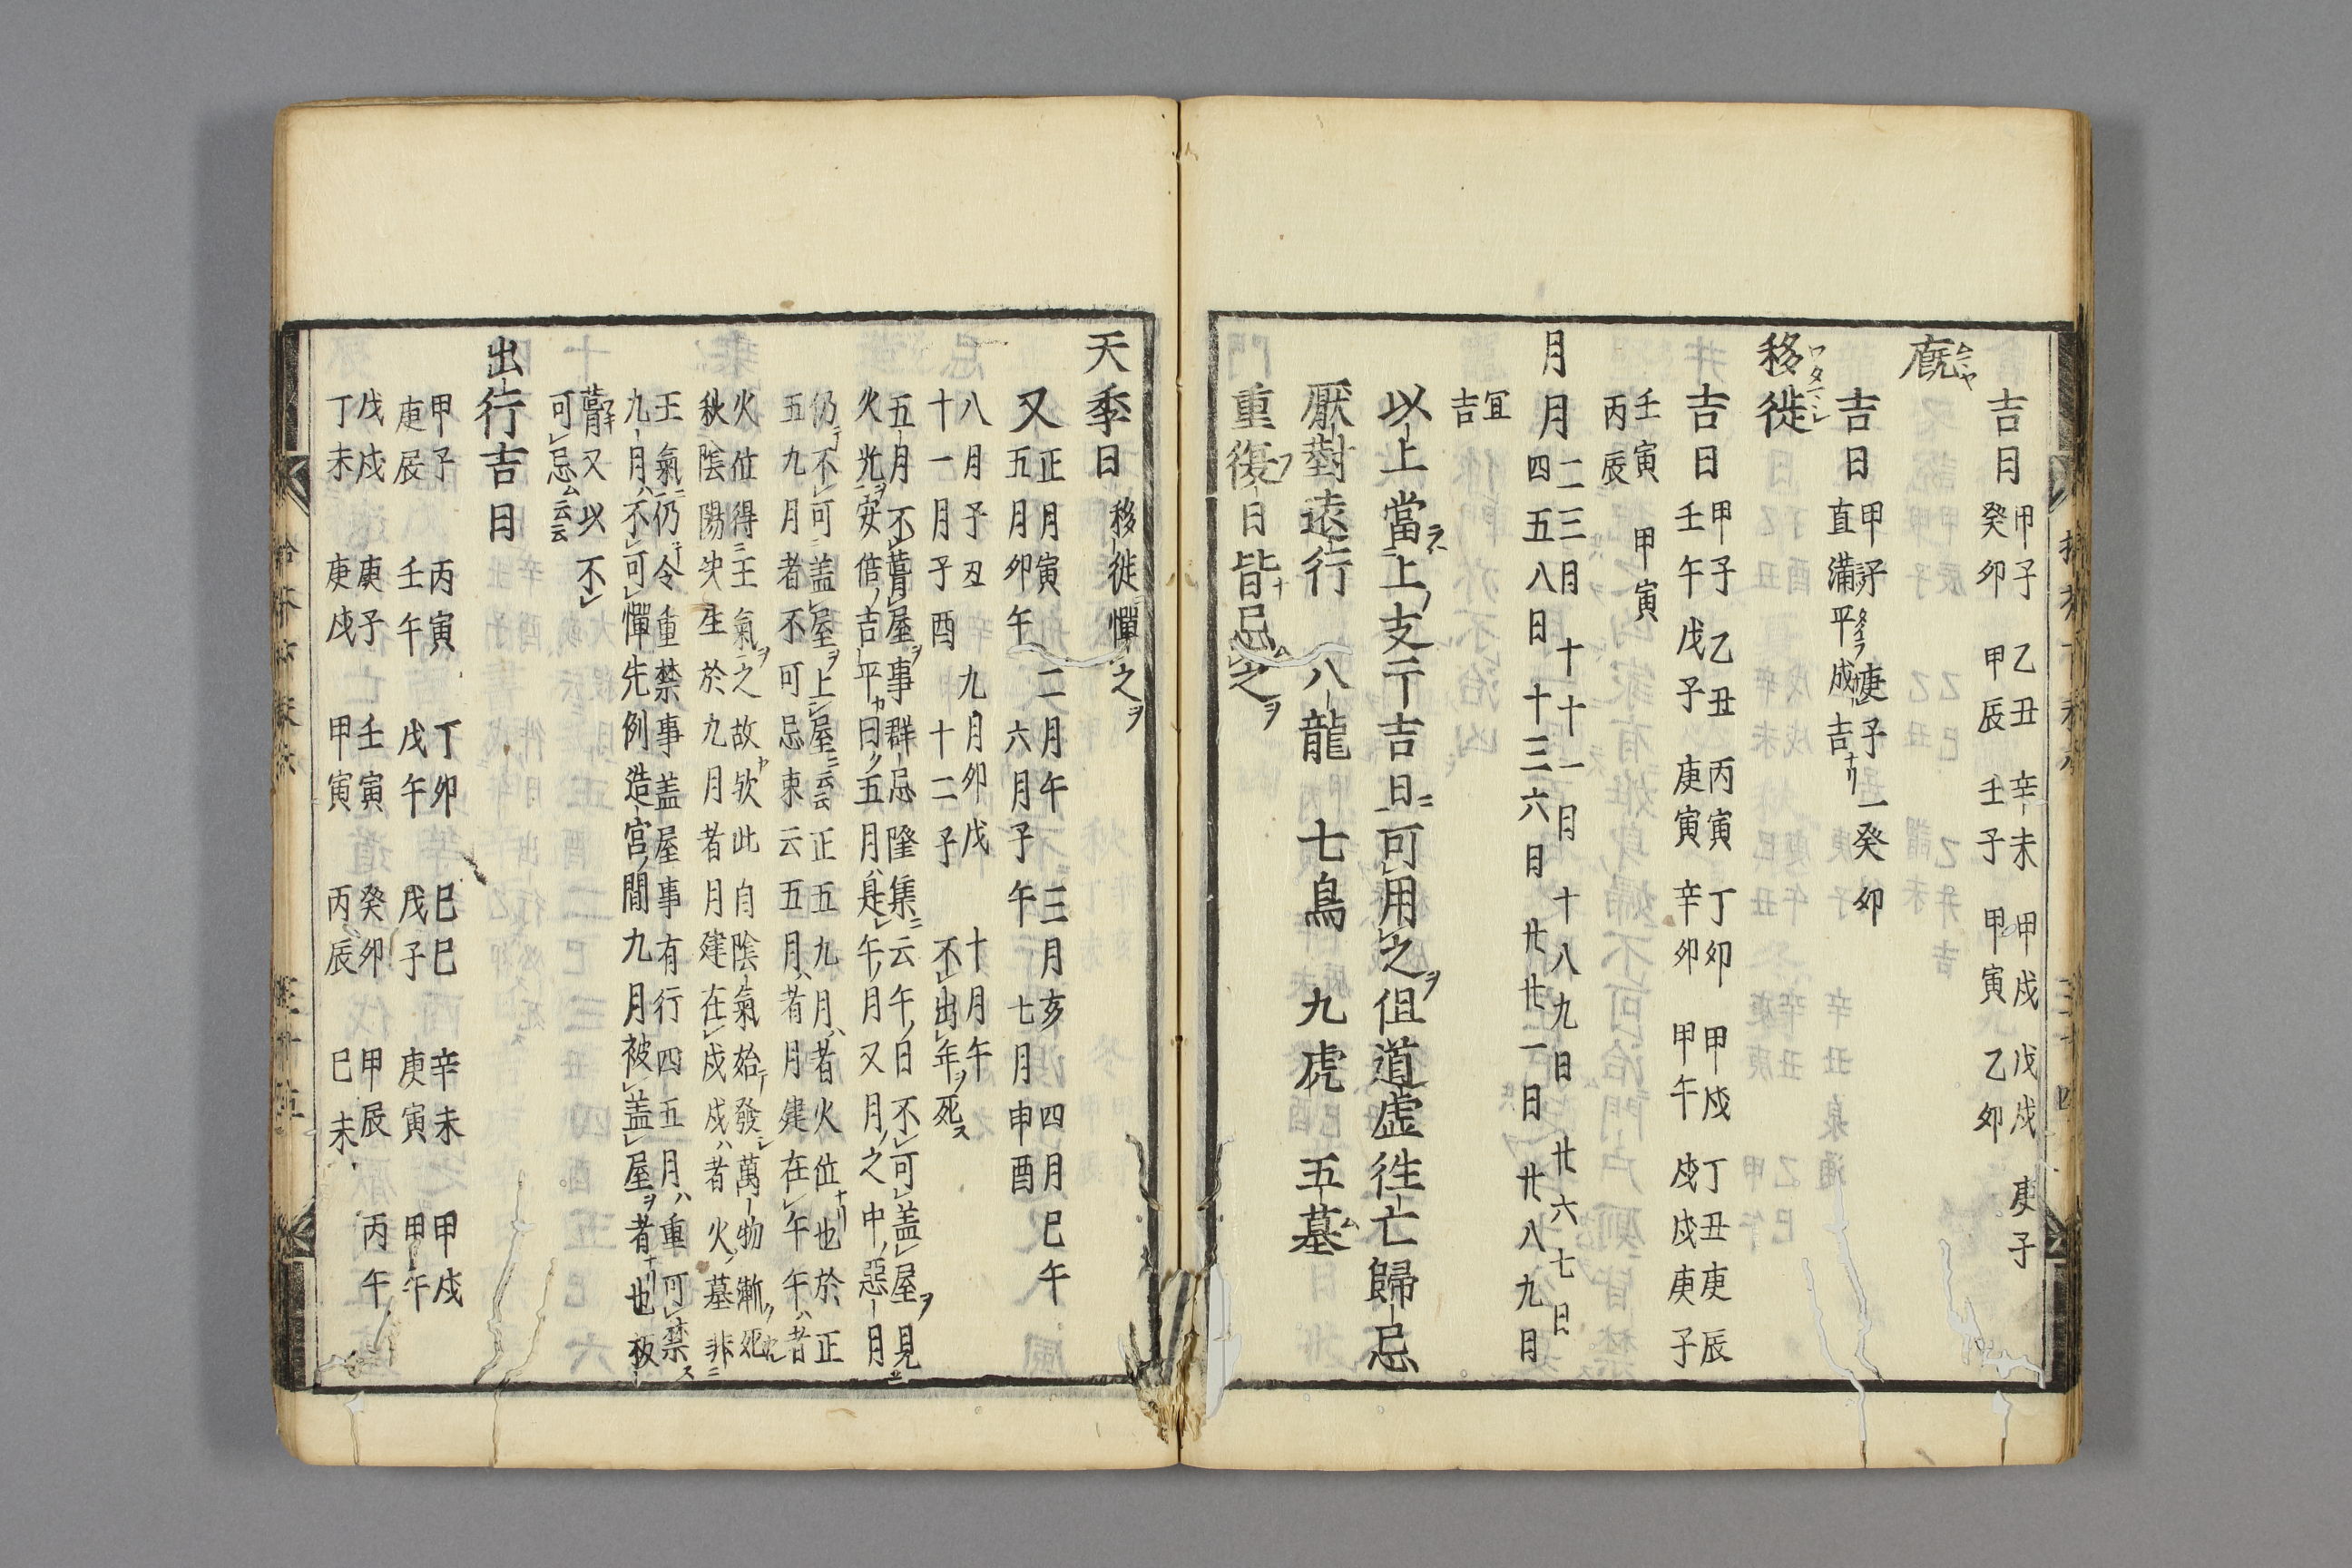 吉日
甲子 乙丑 辛未 甲戌 戊戌 庚子
癸卯 甲辰 壬子 甲寅 乙卯
廐
吉日
甲子 庚子 一癸卯
直満平成吉
移徙
吉日
甲子 乙丑 丙寅 丁卯 甲戌 丁丑 庚辰
壬午 戊子 庚寅 辛卯 甲午 戊戌 庚子
壬寅 甲寅
丙辰
月月
二三月 十十一月 十八九日 廿六七日
四五八日 十三六日 廿廿一日 廿八九月
宜
吉
以上當上支干吉日可用之但道虚徃亡歸忌
厭對遠行 八龍 七鳥 九虎 五墓
重復日皆忌之
天季日 移徙憚之
又
正月寅 二月午 三月亥 四月巳午
五月卯午 六月子午 七月申酉
八月子丑 九月卯戌 十月午
十一月子酉 十二子 不出年死
五月不葺屋事群忌隆集云午日不可盖屋見
火光安倍吉平曰五月是午月又月之中惡月
仍不可盖屋上屋云云正五九月者火位也於正
五九月者不可忌束云五月者月建在午午者
火位得王氣之故欤此自陰氣始發萬物漸死
秋陰陽決生於九月者月建在戌戌者火墓非
王氣仍令重禁事盖屋事有行四五月重可禁
九月不可憚先例造宮間九月被盖屋者也板
葺又以不
可忌云云
出行吉日
甲子 丙寅 丁卯 巳巳 辛未 甲戌
庚辰 壬午 戊午 戊子 庚寅 甲午
戊戌 庚子 壬寅 癸卯 甲辰 丙午
丁未 庚戌 甲寅 丙辰 巳未